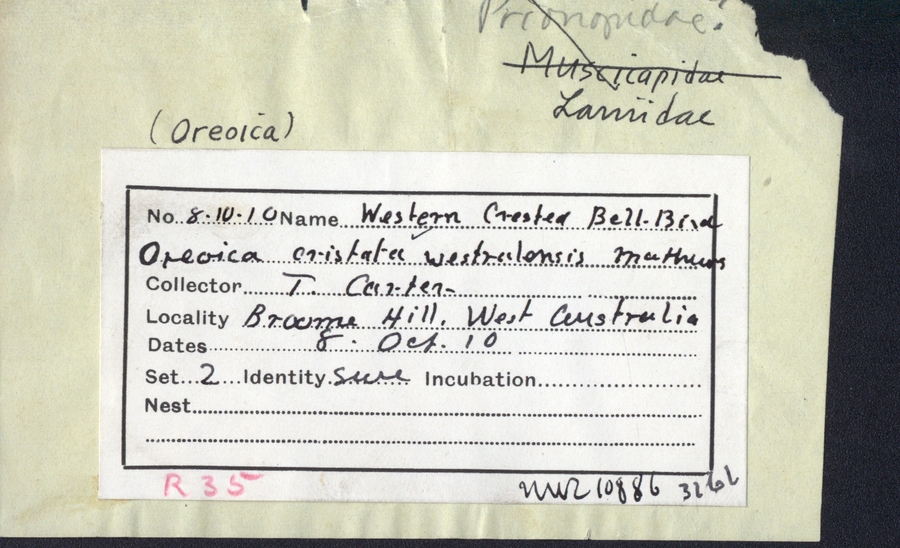 Prionopidae?
Muscicapidae
Laniidae
(Oreoica)
No. 8.10.10 Name Western Crested Bell-Bird
Oreoica cristata westralensis Mathews
Collector T. Carter
Locality Broome Hill, West Australia
Dates 8. Oct. 10
Set 2 Identity sure Incubation
Nest
R 35
10886